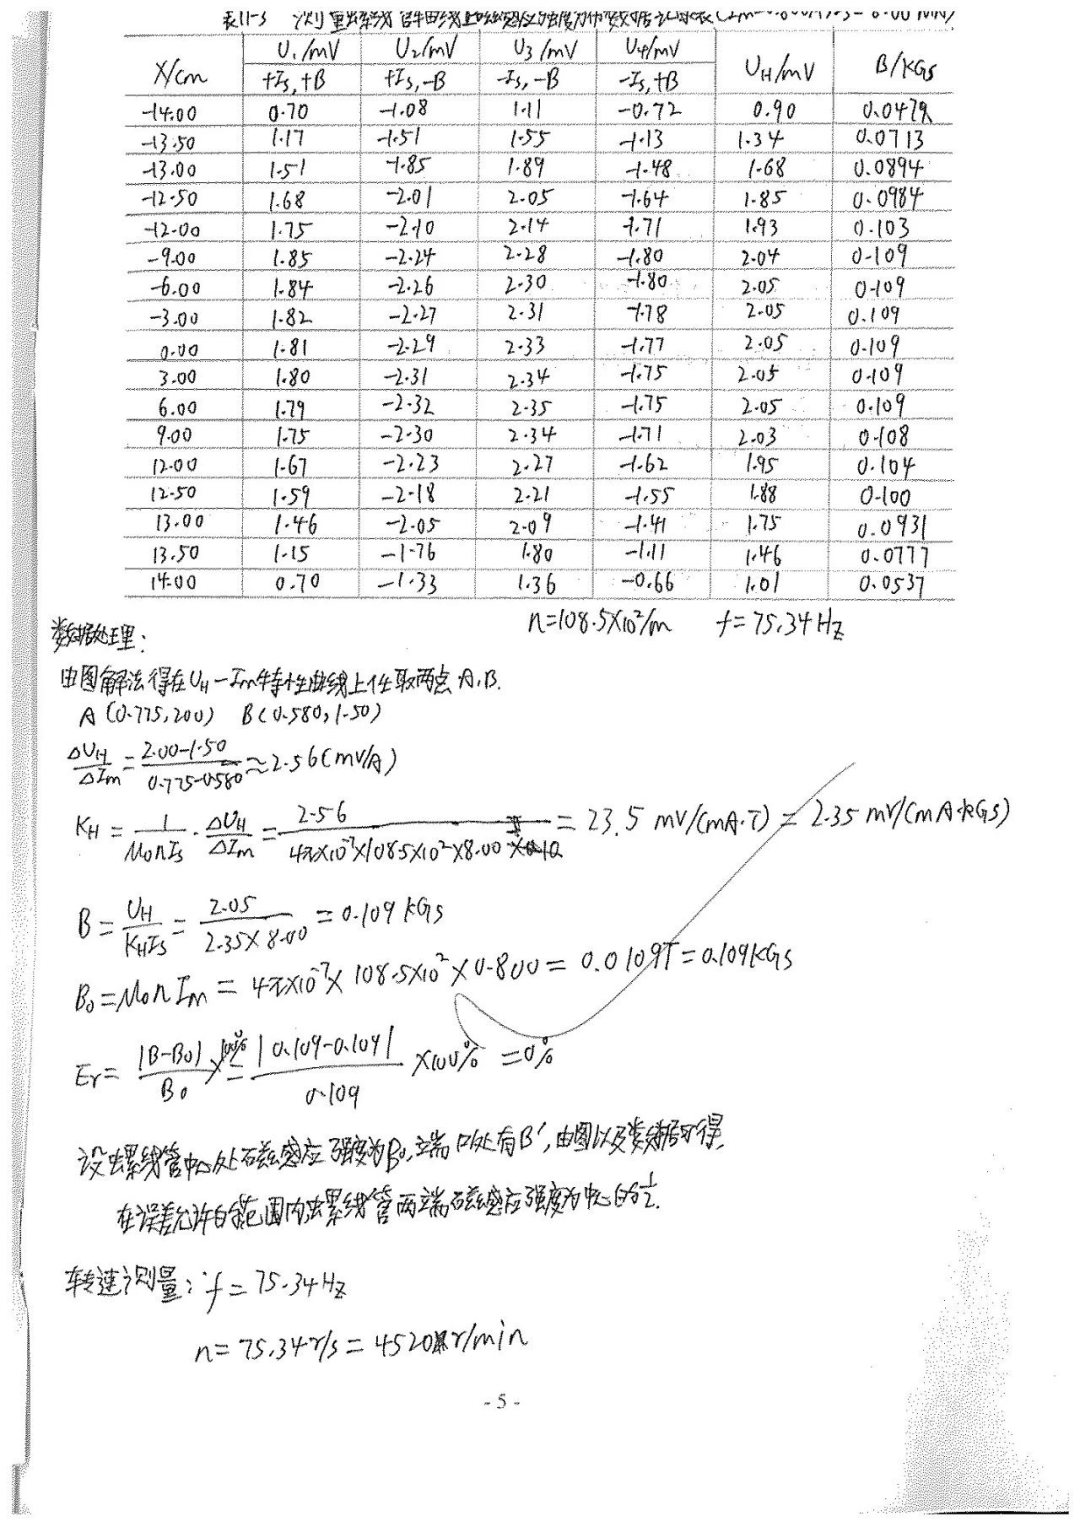 表11-3 测量螺线管轴线上磁感应强度分布数据记录表(Im=0.800A, Is=8.00mA)
X/cm U₁/mV U₂/mV U₃/mV U₄/mV U_H/mV B/KGs
+Is,+B +Is,-B -Is,-B -Is,+B
-14.00 0.70 -1.08 1.11 -0.72 0.90 0.0479
-13.50 1.17 -1.51 1.55 -1.13 1.34 0.0713
-13.00 1.51 -1.85 1.89 -1.48 1.68 0.0894
-12.50 1.68 -2.01 2.05 -1.64 1.85 0.0984
-12.00 1.75 -2.10 2.14 -1.71 1.93 0.103
-9.00 1.85 -2.24 2.28 -1.80 2.04 0.109
-6.00 1.84 -2.26 2.30 -1.80 2.05 0.109
-3.00 1.82 -2.27 2.31 -1.78 2.05 0.109
0.00 1.81 -2.29 2.33 -1.77 2.05 0.109
3.00 1.80 -2.31 2.34 -1.75 2.05 0.109
6.00 1.79 -2.32 2.35 -1.75 2.05 0.109
9.00 1.75 -2.30 2.34 -1.71 2.03 0.108
12.00 1.67 -2.23 2.27 -1.62 1.95 0.104
12.50 1.59 -2.18 2.21 -1.55 1.88 0.100
13.00 1.46 -2.05 2.09 -1.41 1.75 0.0931
13.50 1.15 -1.76 1.80 -1.11 1.46 0.0777
14.00 0.70 -1.33 1.36 -0.66 1.01 0.0537
n=108.5×10²/m f=75.34Hz
数据处理:
由图解法得在U_H-Im特性曲线上任取两点A,B.
A(0.775,200) B(0.580,1.50)
ΔU_H/ΔIm = (2.00-1.50)/(0.775-0.580) ≈ 2.56(mV/A)
K_H = 1/(μ₀nIs) · ΔU_H/ΔIm = 2.56/(4π×10⁻⁷×108.5×10²×8.00) = 23.5 mV/(mA·T) = 2.35 mV/(mA·KGs)
B = U_H/(K_H Is) = 2.05/(2.35×8.00) = 0.109 KGs
B₀=μ₀nIm = 4π×10⁻⁷×108.5×10²×0.800 = 0.0109T=0.109KGs
Er= |B-B₀|/B₀ ×100% = |0.109-0.109|/0.109 ×100% =0%
设螺线管中心处磁感应强度为B₀,端口处有B′,由图以及数据可得,
在误差允许的范围内螺线管两端磁感应强度为中心的½.
转速测量: f=75.34Hz
n=75.34r/s=4520r/min
- 5 -